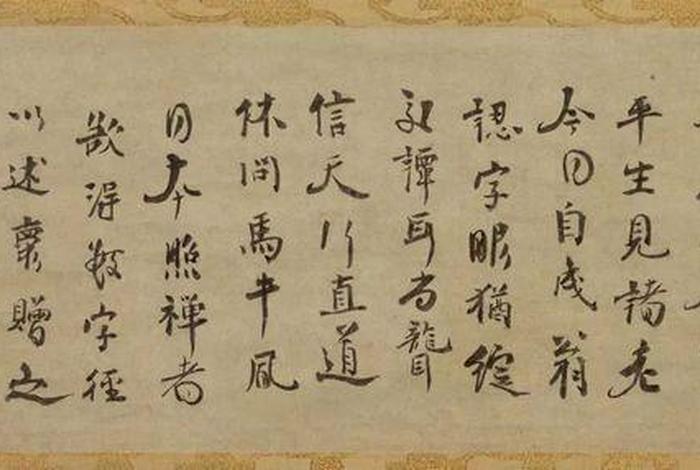 平生見諸老
今日自成翁
認字眼猶綻
交譚耳尚聾
信天行直道
休問馬牛風
日本照禅者
欲得數字徑
以述懷贈之